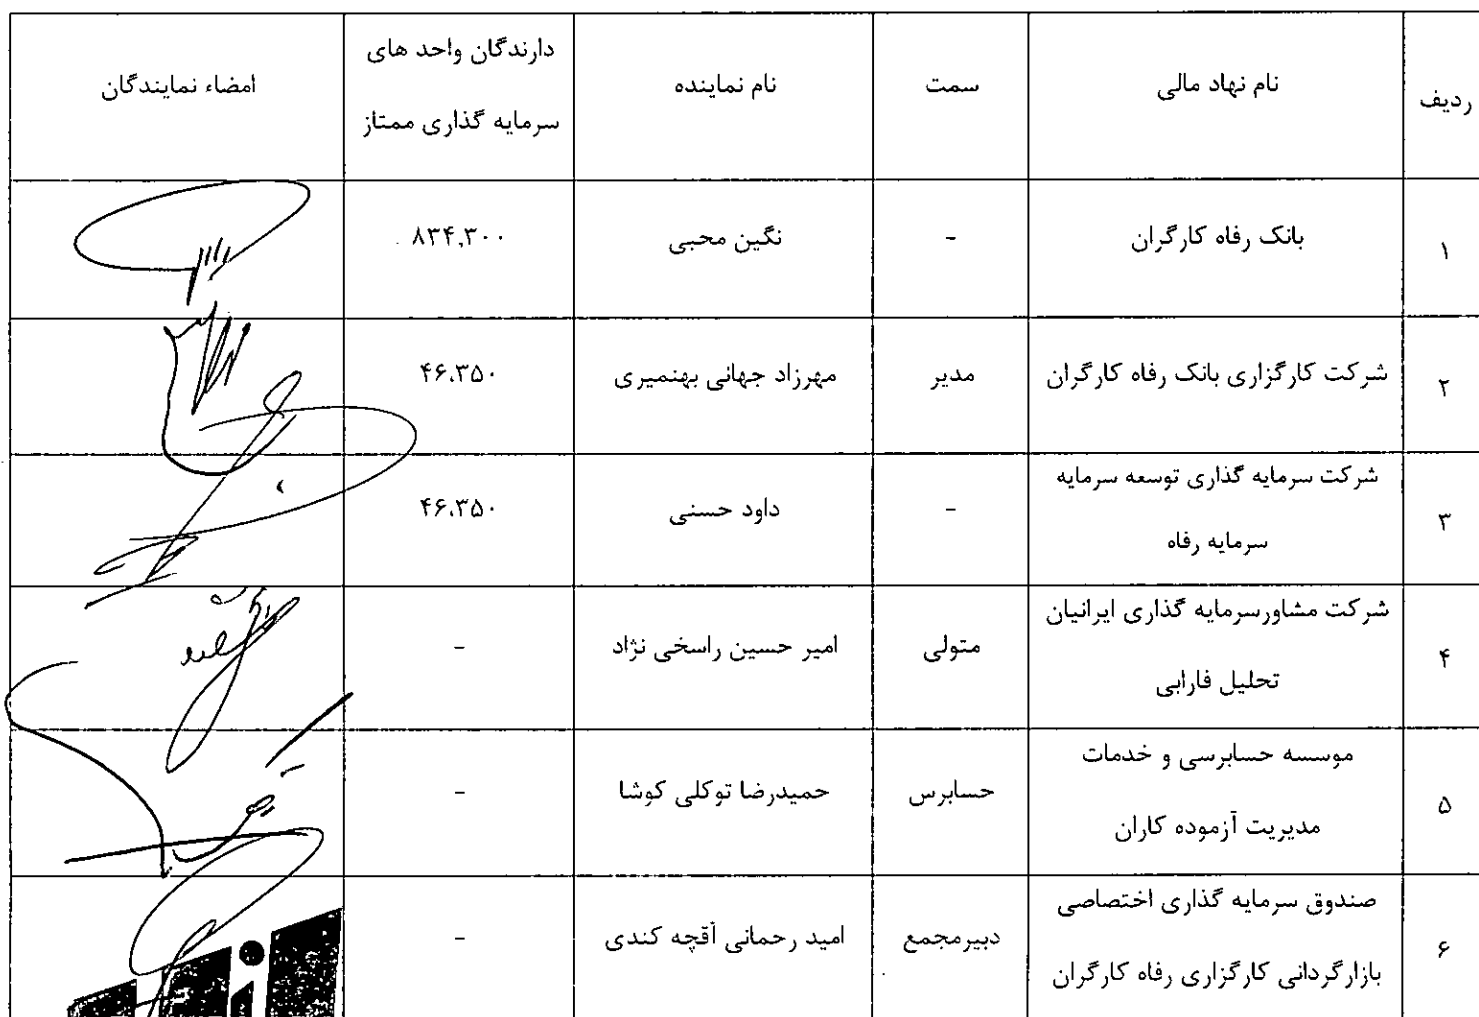 ردیف
نام نهاد مالی
سمت
نام نماینده
دارندگان واحد های
سرمایه گذاری ممتاز
امضاء نمایندگان
۱
بانک رفاه کارگران
-
نگین محبی
۸۳۴,۳۰۰
۲
شرکت کارگزاری بانک رفاه کارگران
مدیر
مهرزاد جهانی بهنمیری
۴۶,۳۵۰
۳
شرکت سرمایه گذاری توسعه سرمایه
سرمایه رفاه
-
داود حسنی
۴۶,۳۵۰
۴
شرکت مشاورسرمایه گذاری ایرانیان
تحلیل فارابی
متولی
امیر حسین راسخی نژاد
-
۵
موسسه حسابرسی و خدمات
مدیریت آزموده کاران
حسابرس
حمیدرضا توکلی کوشا
-
۶
صندوق سرمایه گذاری اختصاصی
بازارگردانی کارگزاری رفاه کارگران
دبیرمجمع
امید رحمانی آقچه کندی
-